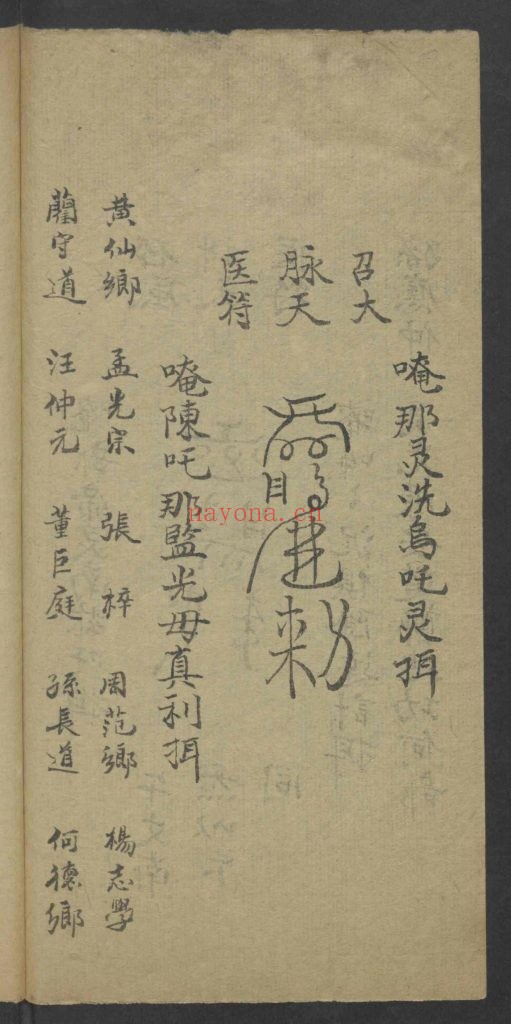 唵那灵洗烏吒灵㧅
召大
脉天
医符
勅
唵陳吒那監光毋真利㧅
黄仙鄉 孟光宗 張梓 周范鄉 楊志學
藺守道 汪仲元 董巨庭 孫長道 何德鄉
nayona.cn